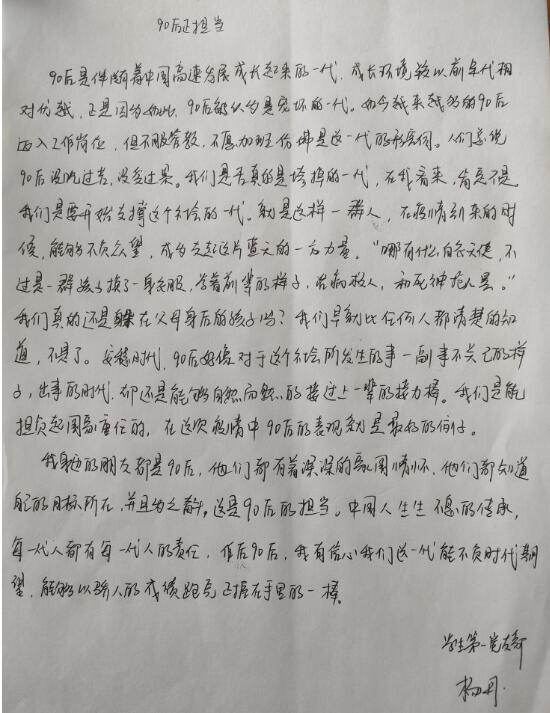 90后正担当
90后是伴随着中国高速发展成长起来的一代，成长环境较以前年代相
对优越，正是因为如此，90后被认为是宠坏的一代。如今越来越多的90后
迈入工作岗位，但不服管教，不愿加班仿佛是这一代的形容词。人们总说
90后没吃过苦，没受过累。我们是否真的是垮掉的一代，在我看来，肯定不是
我们是要开始支撑这个社会的一代。就是这样一群人，在疫情到来的时
候，能够不负众望，成为支起这片蓝天的一方力量。“哪有什么白衣天使，不
过是一群孩子换了一身衣服，学着前辈的样子，治病救人，和死神抢人罢。”
我们真的还是躲在父母身后的孩子吗？我们早就比任何人都清楚的知
道，不是了。安稳时代，90后好像对于这个社会所发生的事一副事不关己的样
子，出事的时代，却还是能够自然而然的接过上一辈的接力棒。我们是能
担负起国家重任的，在这次疫情中90后的表现就是最好的例子。
我身边的朋友都是90后，他们都有着深深的家国情怀，他们都知道
自己的目标所在，并且为之奋斗，这是90后的担当。中国人生生不息的传承，
每一代人都有每一代人的责任，作为90后，我有信心我们这一代能不负时代期
望，能够以骄人的成绩跑完正握在手里的一棒。
学生第一党支部
杨丹